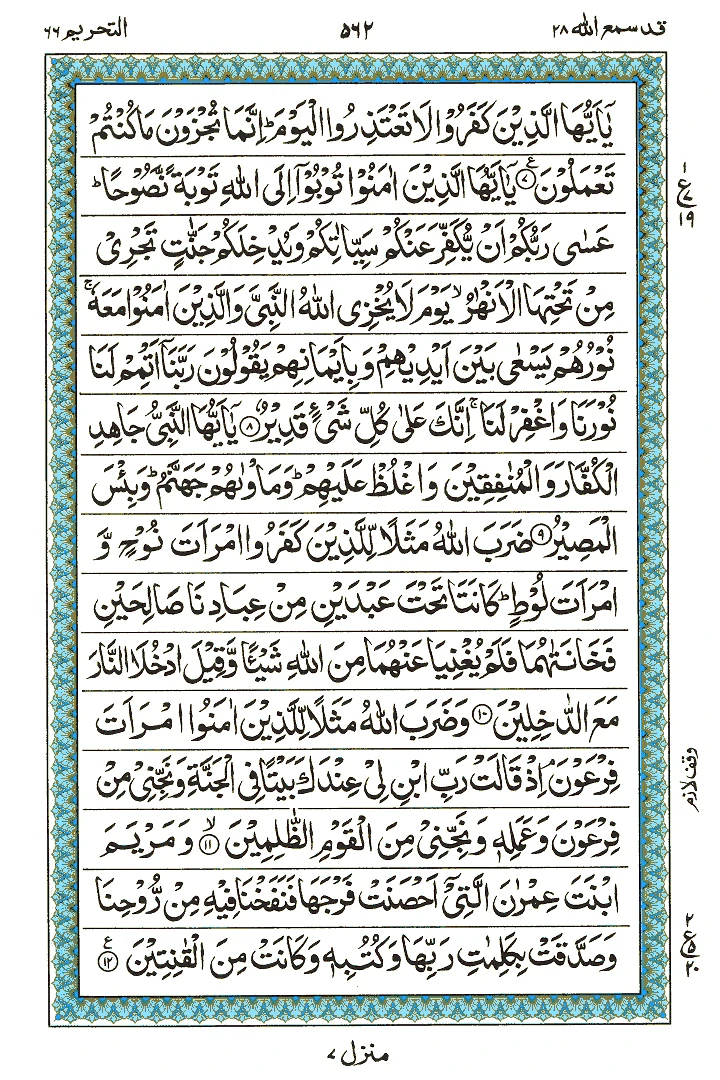 قد سمع الله ٢٨ ٥٦٢ التحريم ٦٦
يٰۤاَيُّهَا الَّذِيْنَ كَفَرُوْا لَا تَعْتَذِرُوا الْيَوْمَ ؕ اِنَّمَا تُجْزَوْنَ مَا كُنْتُمْ
تَعْمَلُوْنَ ۧ‏ ﴿۷﴾ يٰۤاَيُّهَا الَّذِيْنَ اٰمَنُوْا تُوْبُوْۤا اِلَى اللّٰهِ تَوْبَةً نَّصُوْحًا ؕ
ع ١ ٧ ١٩
عَسٰى رَبُّكُمْ اَنْ يُّكَفِّرَ عَنْكُمْ سَيِّاٰتِكُمْ وَيُدْخِلَكُمْ جَنّٰتٍ تَجْرِيْ
مِنْ تَحْتِهَا الْاَنْهٰرُ ۙ يَوْمَ لَا يُخْزِى اللّٰهُ النَّبِيَّ وَالَّذِيْنَ اٰمَنُوْا مَعَهٗ ۚ
نُوْرُهُمْ يَسْعٰى بَيْنَ اَيْدِيْهِمْ وَبِاَيْمَانِهِمْ يَقُوْلُوْنَ رَبَّنَاۤ اَتْمِمْ لَنَا
نُوْرَنَا وَاغْفِرْ لَنَا ۚ اِنَّكَ عَلٰى كُلِّ شَيْءٍ قَدِيْرٌ ﴿۸﴾ يٰۤاَيُّهَا النَّبِيُّ جَاهِدِ
الْكُفَّارَ وَالْمُنٰفِقِيْنَ وَاغْلُظْ عَلَيْهِمْ ؕ وَمَاْوٰىهُمْ جَهَنَّمُ ؕ وَبِئْسَ
الْمَصِيْرُ ﴿۹﴾ ضَرَبَ اللّٰهُ مَثَلًا لِّلَّذِيْنَ كَفَرُوا امْرَاَتَ نُوْحٍ وَّ
امْرَاَتَ لُوْطٍ ؕ كَانَتَا تَحْتَ عَبْدَيْنِ مِنْ عِبَادِنَا صَالِحَيْنِ
فَخَانَتٰهُمَا فَلَمْ يُغْنِيَا عَنْهُمَا مِنَ اللّٰهِ شَيْـًٔا وَّقِيْلَ ادْخُلَا النَّارَ
مَعَ الدّٰخِلِيْنَ ﴿۱۰﴾ وَضَرَبَ اللّٰهُ مَثَلًا لِّلَّذِيْنَ اٰمَنُوا امْرَاَتَ
فِرْعَوْنَ ۘ اِذْ قَالَتْ رَبِّ ابْنِ لِيْ عِنْدَكَ بَيْتًا فِى الْجَنَّةِ وَنَجِّنِيْ مِنْ
وقف لازم
فِرْعَوْنَ وَعَمَلِهٖ وَنَجِّنِيْ مِنَ الْقَوْمِ الظّٰلِمِيْنَ ۙ ﴿۱۱﴾ وَمَرْيَمَ
ابْنَتَ عِمْرٰنَ الَّتِيْۤ اَحْصَنَتْ فَرْجَهَا فَنَفَخْنَا فِيْهِ مِنْ رُّوْحِنَا
وَصَدَّقَتْ بِكَلِمٰتِ رَبِّهَا وَكُتُبِهٖ وَكَانَتْ مِنَ الْقٰنِتِيْنَ ۧ ﴿۱۲﴾
ع ٢ ٥ ٢٠
منزل ٧